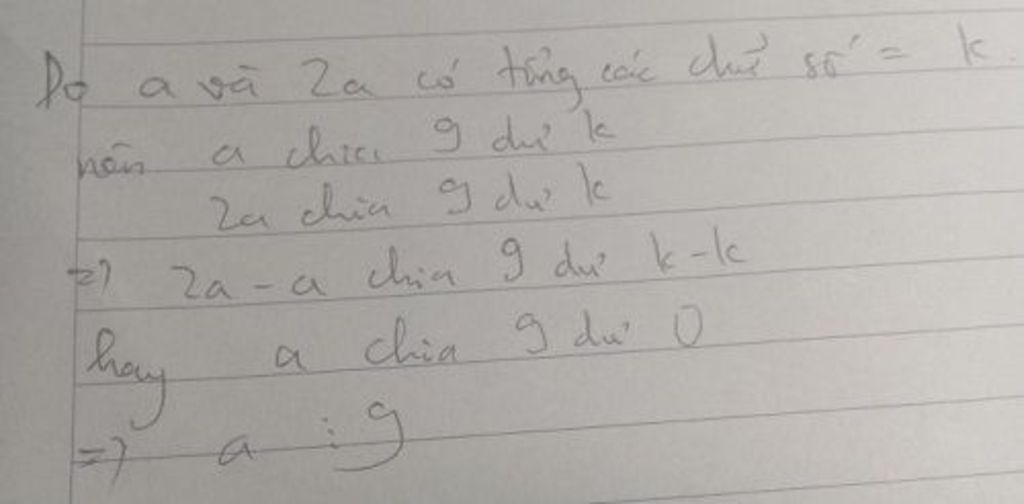 Do a và 2a có tổng các chữ số = k.
nên a chia 9 dư k
2a chia 9 dư k
=> 2a - a chia 9 dư k-k
hay a chia 9 dư 0
=> a ⋮ 9